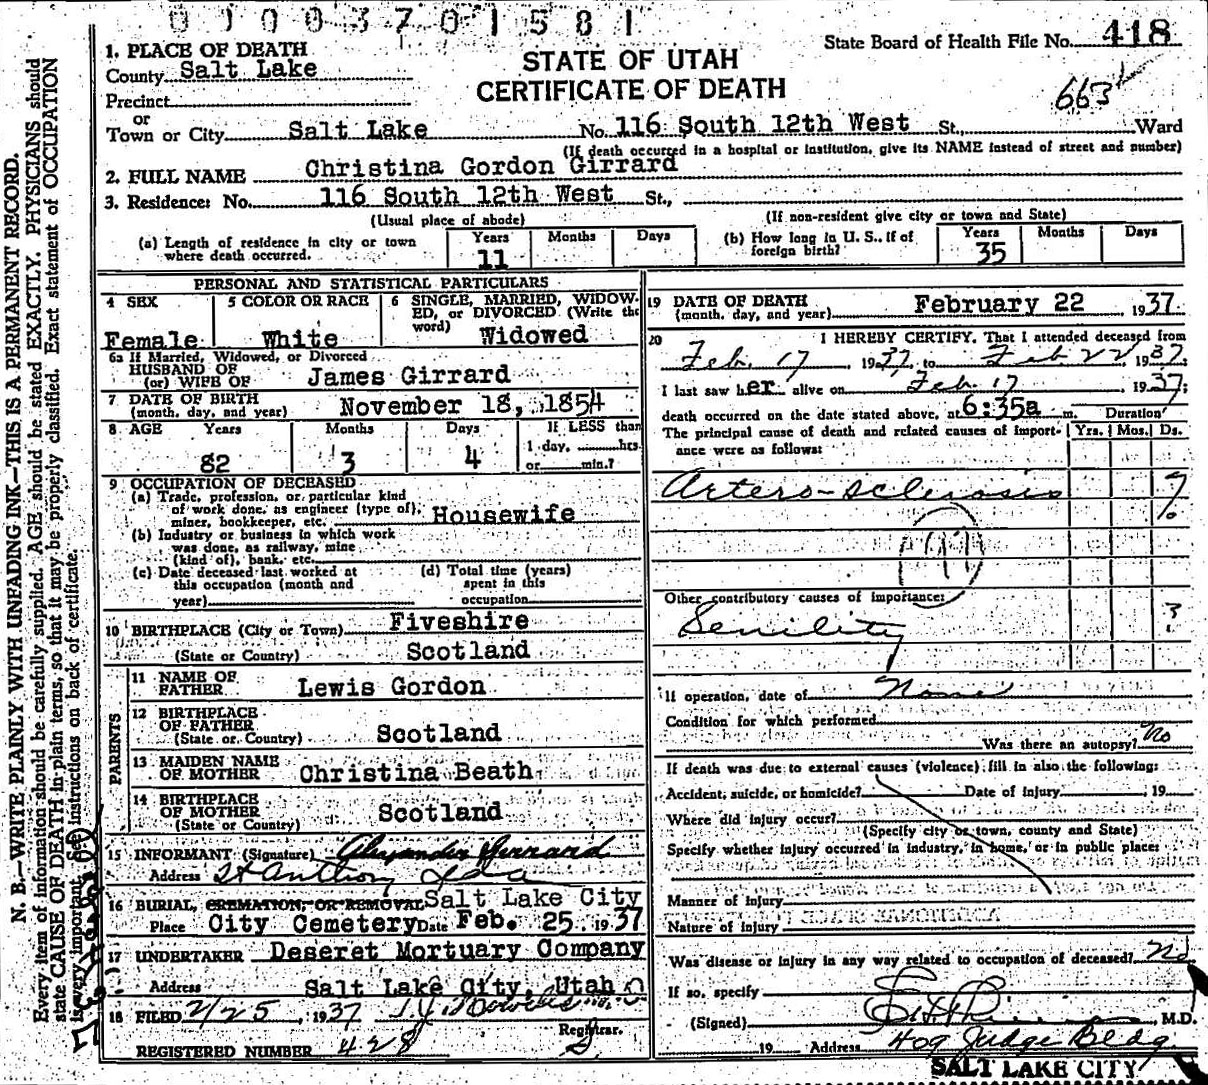 0 1 0 0 3 7 0 1 5 8 1
State Board of Health File No. 418
663
STATE OF UTAH
CERTIFICATE OF DEATH
1. PLACE OF DEATH
County Salt Lake
Precinct
or
Town or City Salt Lake No. 116 South 12th West St., Ward
(If death occurred in a hospital or institution, give its NAME instead of street and number)
2. FULL NAME Christina Gordon Girrard
3. Residence: No. 116 South 12th West St.,
(Usual place of abode) (If non-resident give city or town and State)
(a) Length of residence in city or town where death occurred. Years 11 Months Days
(b) How long in U. S., if of foreign birth? Years 35 Months Days
PERSONAL AND STATISTICAL PARTICULARS
4 SEX Female
5 COLOR OR RACE White
6 SINGLE, MARRIED, WIDOWED, or DIVORCED (Write the word) Widowed
6a If Married, Widowed, or Divorced
HUSBAND OF
(or) WIFE OF James Girrard
7 DATE OF BIRTH
(month, day, and year) November 18, 1854
8 AGE Years 82 Months 3 Days 4 If LESS than 1 day, hrs. or min.?
9 OCCUPATION OF DECEASED
(a) Trade, profession, or particular kind
of work done, as engineer (type of),
miner, bookkeeper, etc. Housewife
(b) Industry or business in which work
was done, as railway, mine
(kind of), bank, etc.
(c) Date deceased last worked at
this occupation (month and
year)
(d) Total time (years)
spent in this
occupation
10 BIRTHPLACE (City or Town) Fiveshire
(State or Country) Scotland
PARENTS
11 NAME OF FATHER Lewis Gordon
12 BIRTHPLACE OF FATHER
(State or Country) Scotland
13 MAIDEN NAME OF MOTHER Christina Beath
14 BIRTHPLACE OF MOTHER
(State or Country) Scotland
15 INFORMANT (Signature) Alexander Girrard
Address St Anthony Ida
16 BURIAL, CREMATION, OR REMOVAL Salt Lake City
Place City Cemetery Date Feb. 25 1937
17 UNDERTAKER Deseret Mortuary Company
Address Salt Lake City, Utah
18 FILED 2/25, 1937
Registrar.
REGISTERED NUMBER 428
19 DATE OF DEATH
(month, day, and year) February 22 1937.
20 I HEREBY CERTIFY, That I attended deceased from
Feb. 17 1937, to Feb 22, 1937;
I last saw her alive on Feb 17 1937;
death occurred on the date stated above, at 6:35a m. Duration
The principal cause of death and related causes of importance were as follows: Yrs. Mos. Ds.
Artero-sclerosis ?
Other contributory causes of importance:
Senility
If operation, date of None
Condition for which performed
Was there an autopsy? No
If death was due to external causes (violence) fill in also the following:
Accident, suicide, or homicide? Date of injury , 19
Where did injury occur?
(Specify city or town, county and State)
Specify whether injury occurred in industry, in home, or in public place:
Manner of Injury
Nature of Injury
Was disease or injury in any way related to occupation of deceased? No
If so, specify
(Signed) , M.D.
19 Address 409 Judge Bldg
SALT LAKE CITY
N. B.—WRITE PLAINLY WITH UNFADING INK—THIS IS A PERMANENT RECORD.
Every item of information should be carefully supplied. AGE should be stated EXACTLY. PHYSICIANS should
state CAUSE OF DEATH in plain terms, so that it may be properly classified. Exact statement of OCCUPATION
is very important. See instructions on back of certificate.